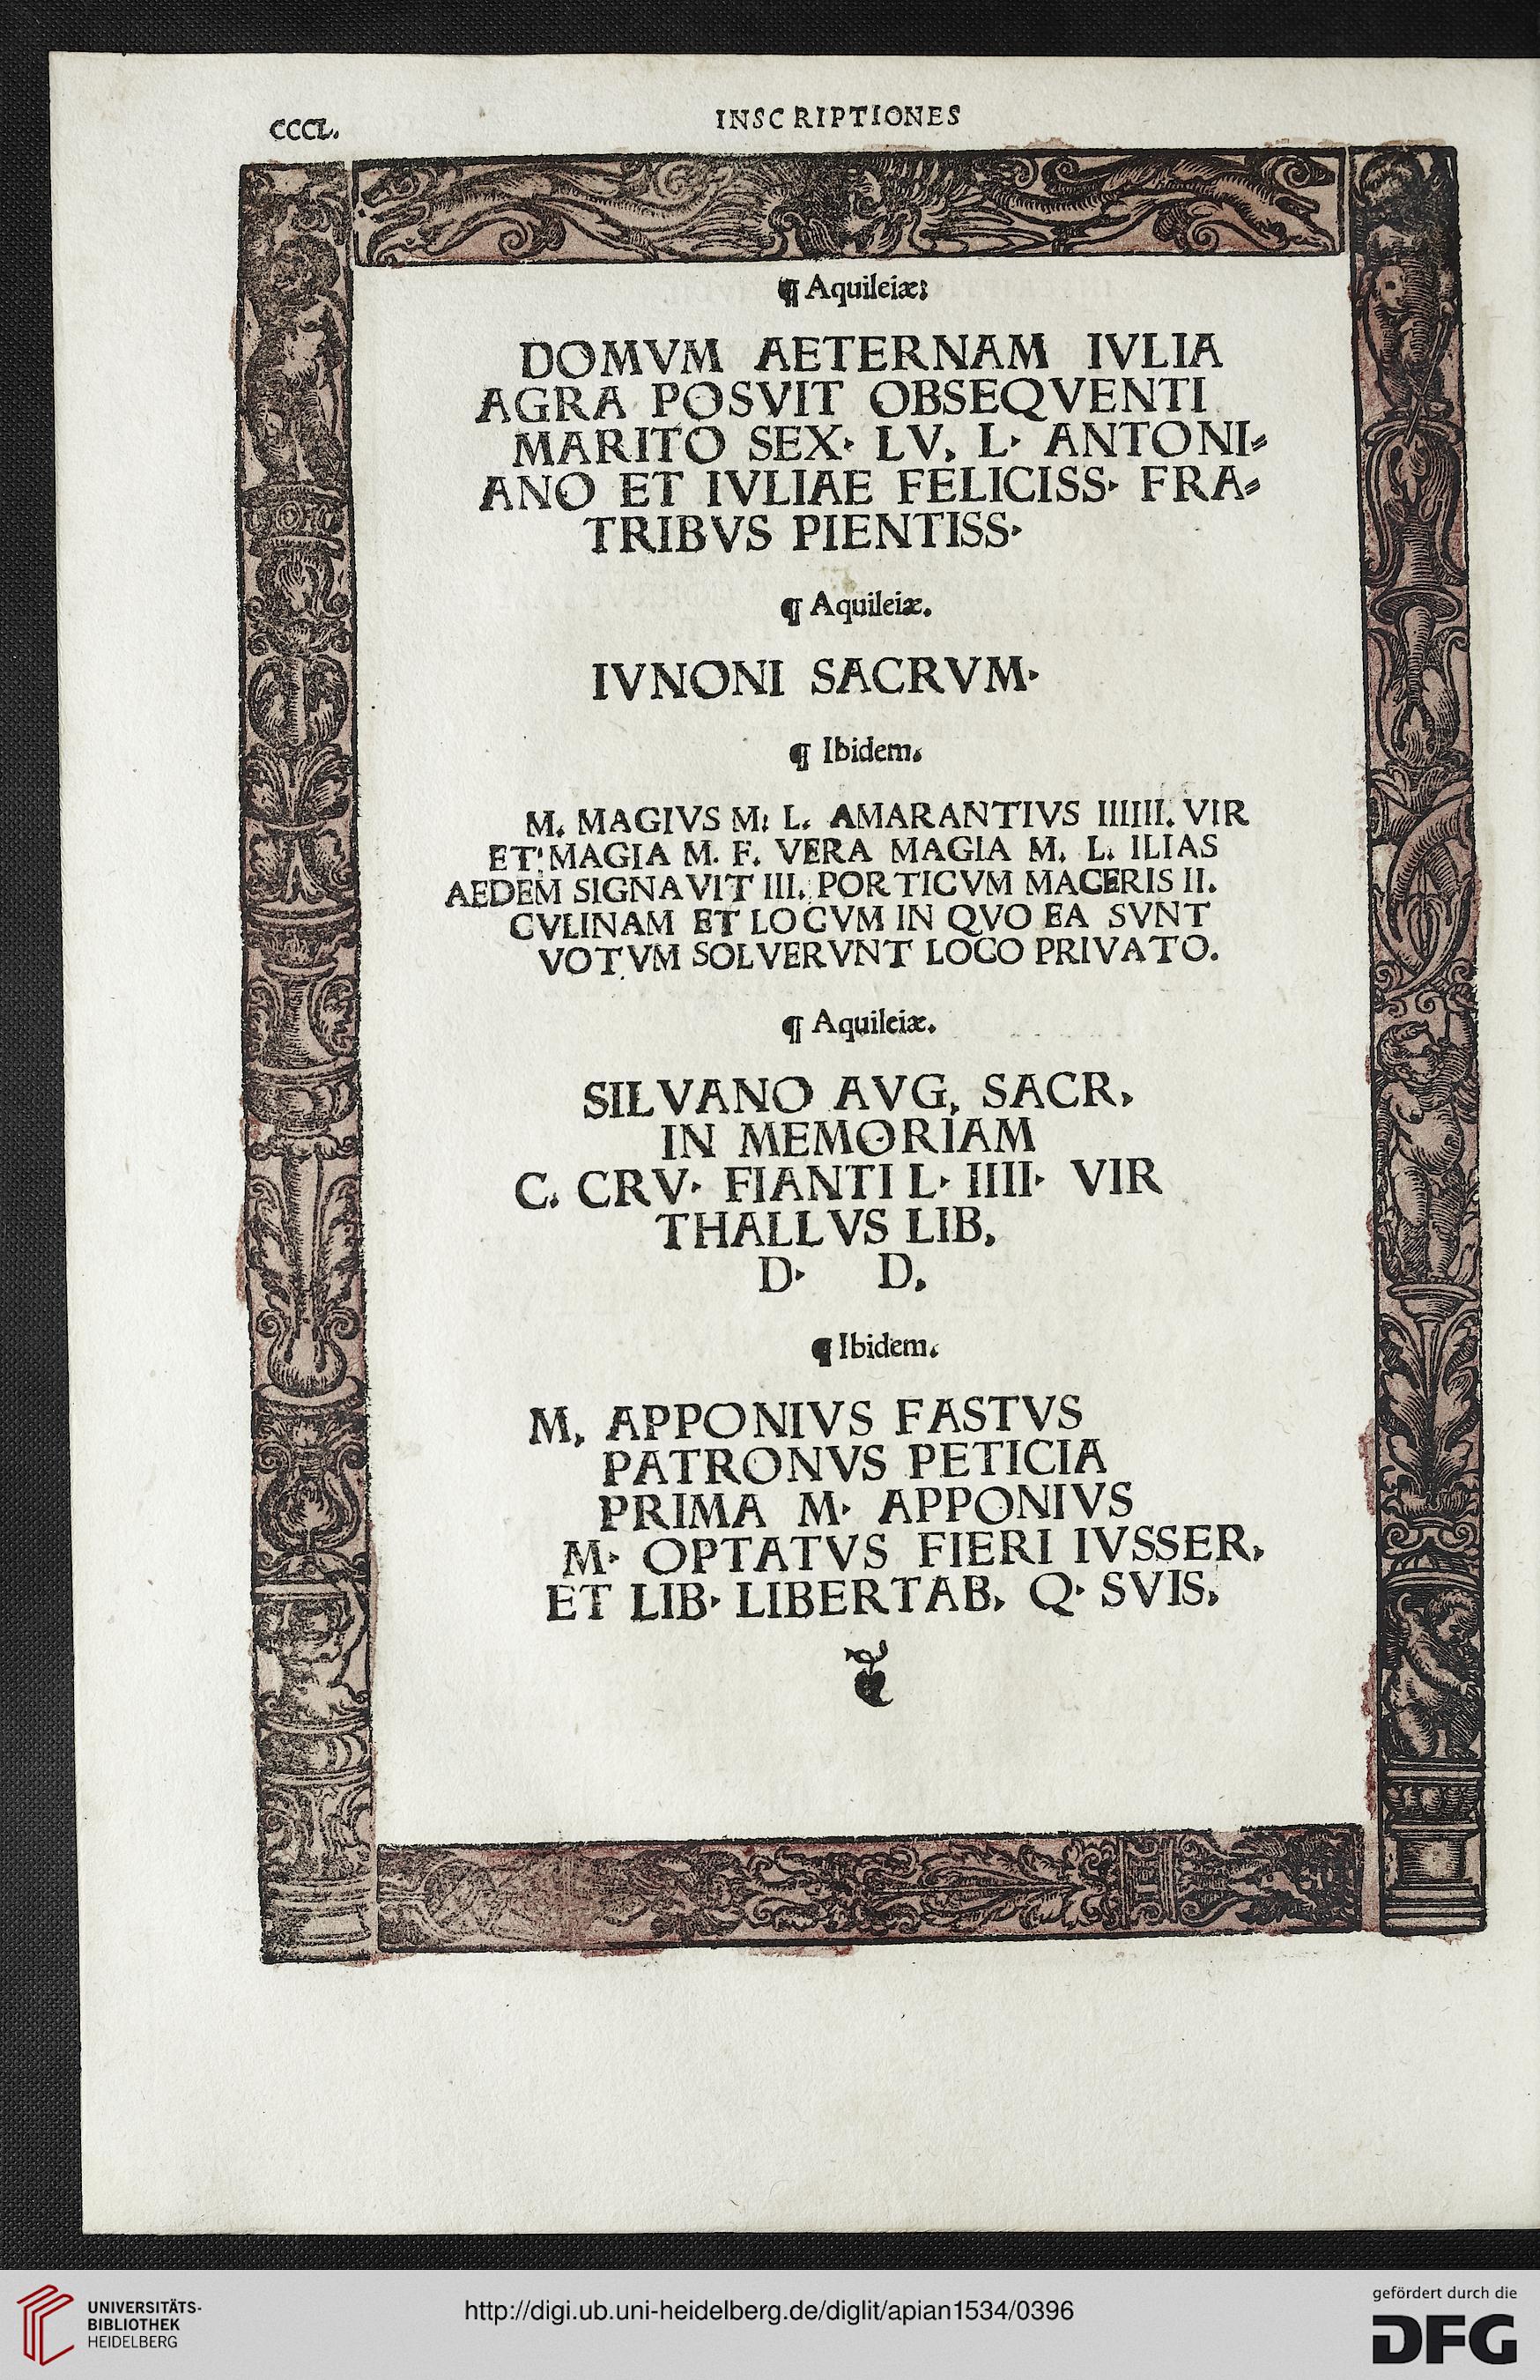 CCCL.
INSCRIPTIONES
¶ Aquileiæ:
DOMVM AETERNAM IVLIA
AGRA POSVIT OBSEQVENTI
MARITO SEX· LV, L· ANTONI⸗
ANO ET IVLIAE FELICISS· FRA⸗
TRIBVS PIENTISS·
¶ Aquileiæ.
IVNONI SACRVM·
¶ Ibidem.
M. MAGIVS M: L. AMARANTIVS IIIIII. VIR
ET MAGIA M. F. VERA MAGIA M. L. ILIAS
AEDEM SIGNAVIT III. PORTICVM MACERIS II.
CVLINAM ET LOCVM IN QVO EA SVNT
VOTVM SOLVERVNT LOCO PRIVATO.
¶ Aquileiæ.
SILVANO AVG, SACR,
IN MEMORIAM
C. CRV· FIANTI L· IIII· VIR
THALLVS LIB,
D· D,
¶ Ibidem.
M, APPONIVS FASTVS
PATRONVS PETICIA
PRIMA M· APPONIVS
M· OPTATVS FIERI IVSSER,
ET LIB· LIBERTAB, Q· SVIS,
UNIVERSITÄTS-
BIBLIOTHEK
HEIDELBERG
http://digi.ub.uni-heidelberg.de/diglit/apian1534/0396
gefördert durch die
DFG